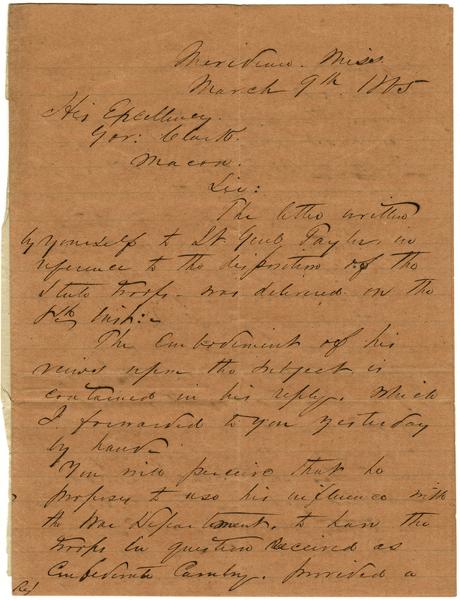 Meridian. Miss.
March 9th. 1865
His Excellency.
Gov: Clark.
Macon.
Sir:
The letter written
by yourself to Lt Genl Taylor, in
reference to the disposition of the
State troops - was delivered on the
Inst: -
The embodiment of his
views upon the subject is
contained in his reply. which
I forwarded to you yesterday
by hand.
You will perceive that he
proposes to use his influence with
the War Department. to have the
troops in question received as
Confederate Cavalry. provided a